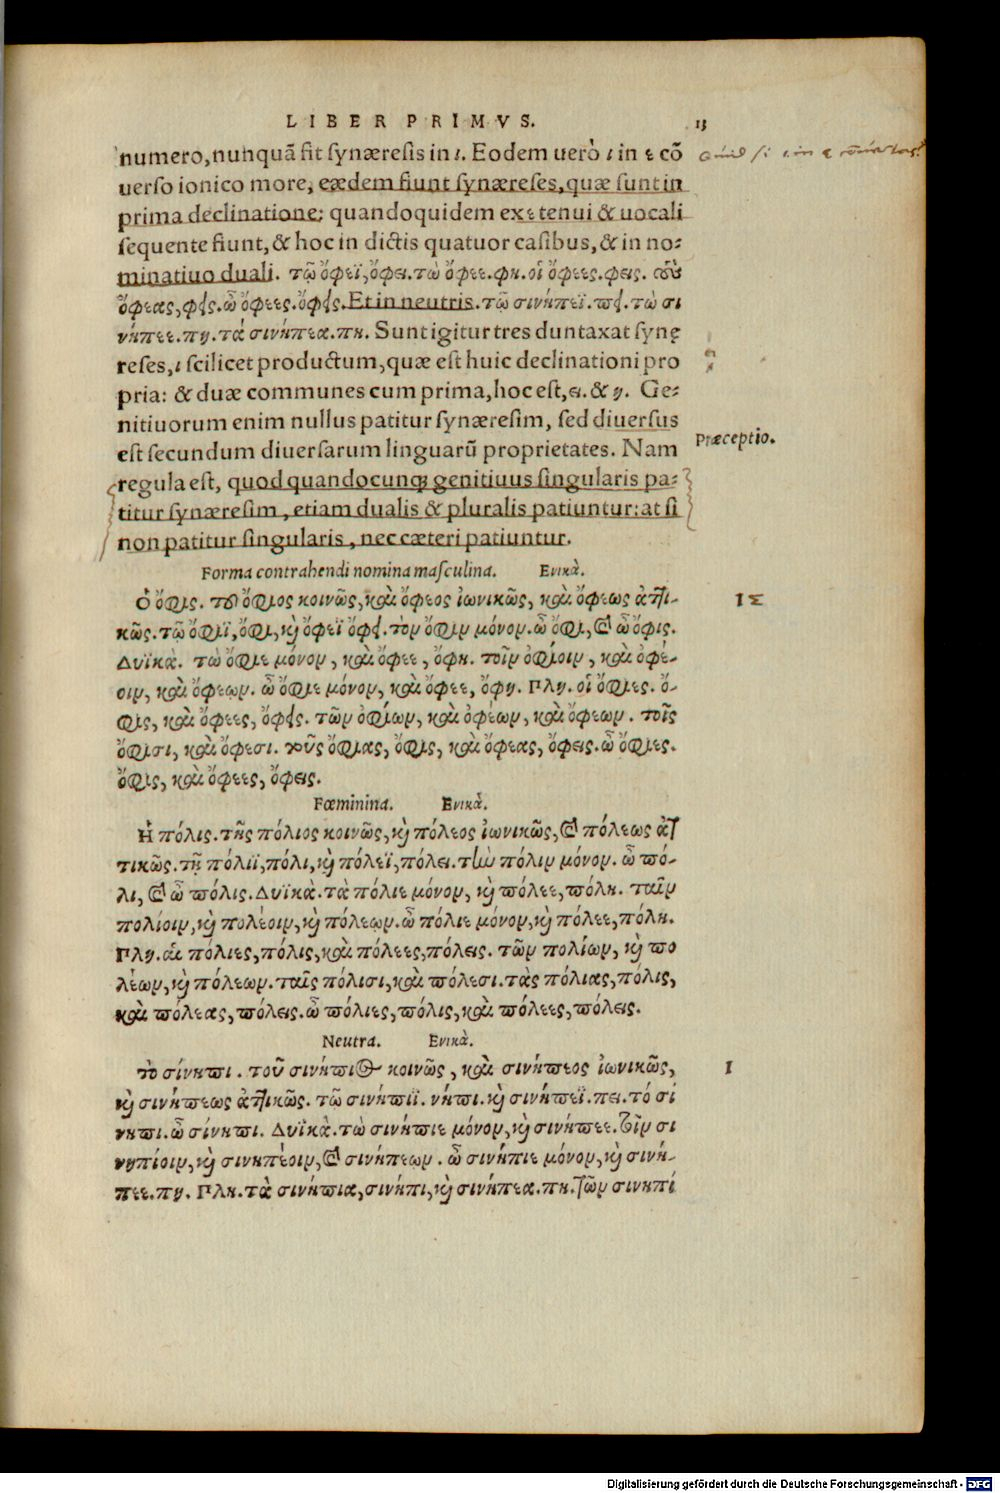 LIBER PRIMVS. 13
numero, nunquã fit synæresis in ι. Eodem uerò ι in ε cõ
uerso ionico more, eædem fiunt synæreses, quæ sunt in
prima declinatione: quandoquidem ex ε tenui & uocali
sequente fiunt, & hoc in dictis quatuor casibus, & in no-
minatiuo duali. τῷ ὄφεϊ, ὄφει. τὼ ὄφεε. φη. οἱ ὄφεες. φεις. τοὺς
ὄφεας, φεις. ὦ ὄφεες. ὄφεις. Et in neutris. τῷ σινήπεϊ. πει. τὼ σι
νήπεε. πη. τὰ σινήπεα. πη. Sunt igitur tres duntaxat synę
reses, ι scilicet productum, quæ est huic declinationi pro
pria: & duæ communes cum prima, hoc est, ει. & η. Ge-
nitiuorum enim nullus patitur synæresim, sed diuersus
est secundum diuersarum linguarũ proprietates. Nam
Præceptio.
regula est, quod quandocunq; genitiuus singularis pa-
titur synæresim, etiam dualis & pluralis patiuntur: at si
non patitur singularis, nec cæteri patiuntur.
Forma contrahendi nomina masculina. Ενικὰ.
Ὁ ὄφις. τοῦ ὄφιος κοινῶς, καὶ ὄφεος ἰωνικῶς, καὶ ὄφεως ἀττι-
ΙΣ
κῶς. τῷ ὄφιϊ, ὄφι, καὶ ὄφεϊ ὄφει. τὸν ὄφιν μόνον. ὦ ὄφι, καὶ ὦ ὄφις.
Δυϊκὰ. τὼ ὄφιε μόνον, καὶ ὄφεε, ὄφη. τοῖν ὀφίοιν, καὶ ὀφέ-
οιν, καὶ ὄφεῳν. ὦ ὄφιε μόνον, καὶ ὄφεε, ὄφη. Πλη. οἱ ὄφιες. ὄ-
φις, καὶ ὄφεες, ὄφεις. τῶν ὀφίων, καὶ ὀφέων, καὶ ὄφεων. τοῖς
ὄφισι, καὶ ὄφεσι. τοὺς ὄφιας, ὄφις, καὶ ὄφεας, ὄφεις. ὦ ὄφιες.
ὄφις, καὶ ὄφεες, ὄφεις.
Fœminina. Ενικὰ.
Ἡ πόλις. τῆς πόλιος κοινῶς, καὶ πόλεος ἰωνικῶς, καὶ πόλεως ἀτ
τικῶς. τῇ πόλιϊ, πόλι, καὶ πόλεϊ, πόλει. τὴν πόλιν μόνον. ὦ πό-
λι, καὶ ὦ πόλις. Δυϊκὰ. τὰ πόλιε μόνον, καὶ πόλεε, πόλη. ταῖν
πολίοιν, καὶ πολέοιν, καὶ πόλεῳν. ὦ πόλιε μόνον, καὶ πόλεε, πόλη.
Πλη. αἱ πόλιες, πόλις, καὶ πόλεες, πόλεις. τῶν πολίων, καὶ πο
λέων, καὶ πόλεων. ταῖς πόλισι, καὶ πόλεσι. τὰς πόλιας, πόλις,
καὶ πόλεας, πόλεις. ὦ πόλιες, πόλις, καὶ πόλεες, πόλεις.
Neutra. Ενικὰ.
Τὸ σίνηπι. τοῦ σινήπιος κοινῶς, καὶ σινήπεος ἰωνικῶς,
Ι
καὶ σινήπεως ἀττικῶς. τῷ σινήπιϊ. νήπι. καὶ σινήπεϊ. πει. τό σί
νηπι. ὦ σίνηπι. Δυϊκὰ. τὼ σινήπιε μόνον, καὶ σινήπεε. τοῖν σι
νηπίοιν, καὶ σινηπέοιν, καὶ σινήπεῳν. ὦ σινήπιε μόνον, καὶ σινή-
πεε. πη. Πλη. τὰ σινήπια, σινήπι, καὶ σινήπεα. πη. τῶν σινηπί
Digitalisierung gefördert durch die Deutsche Forschungsgemeinschaft - DFG